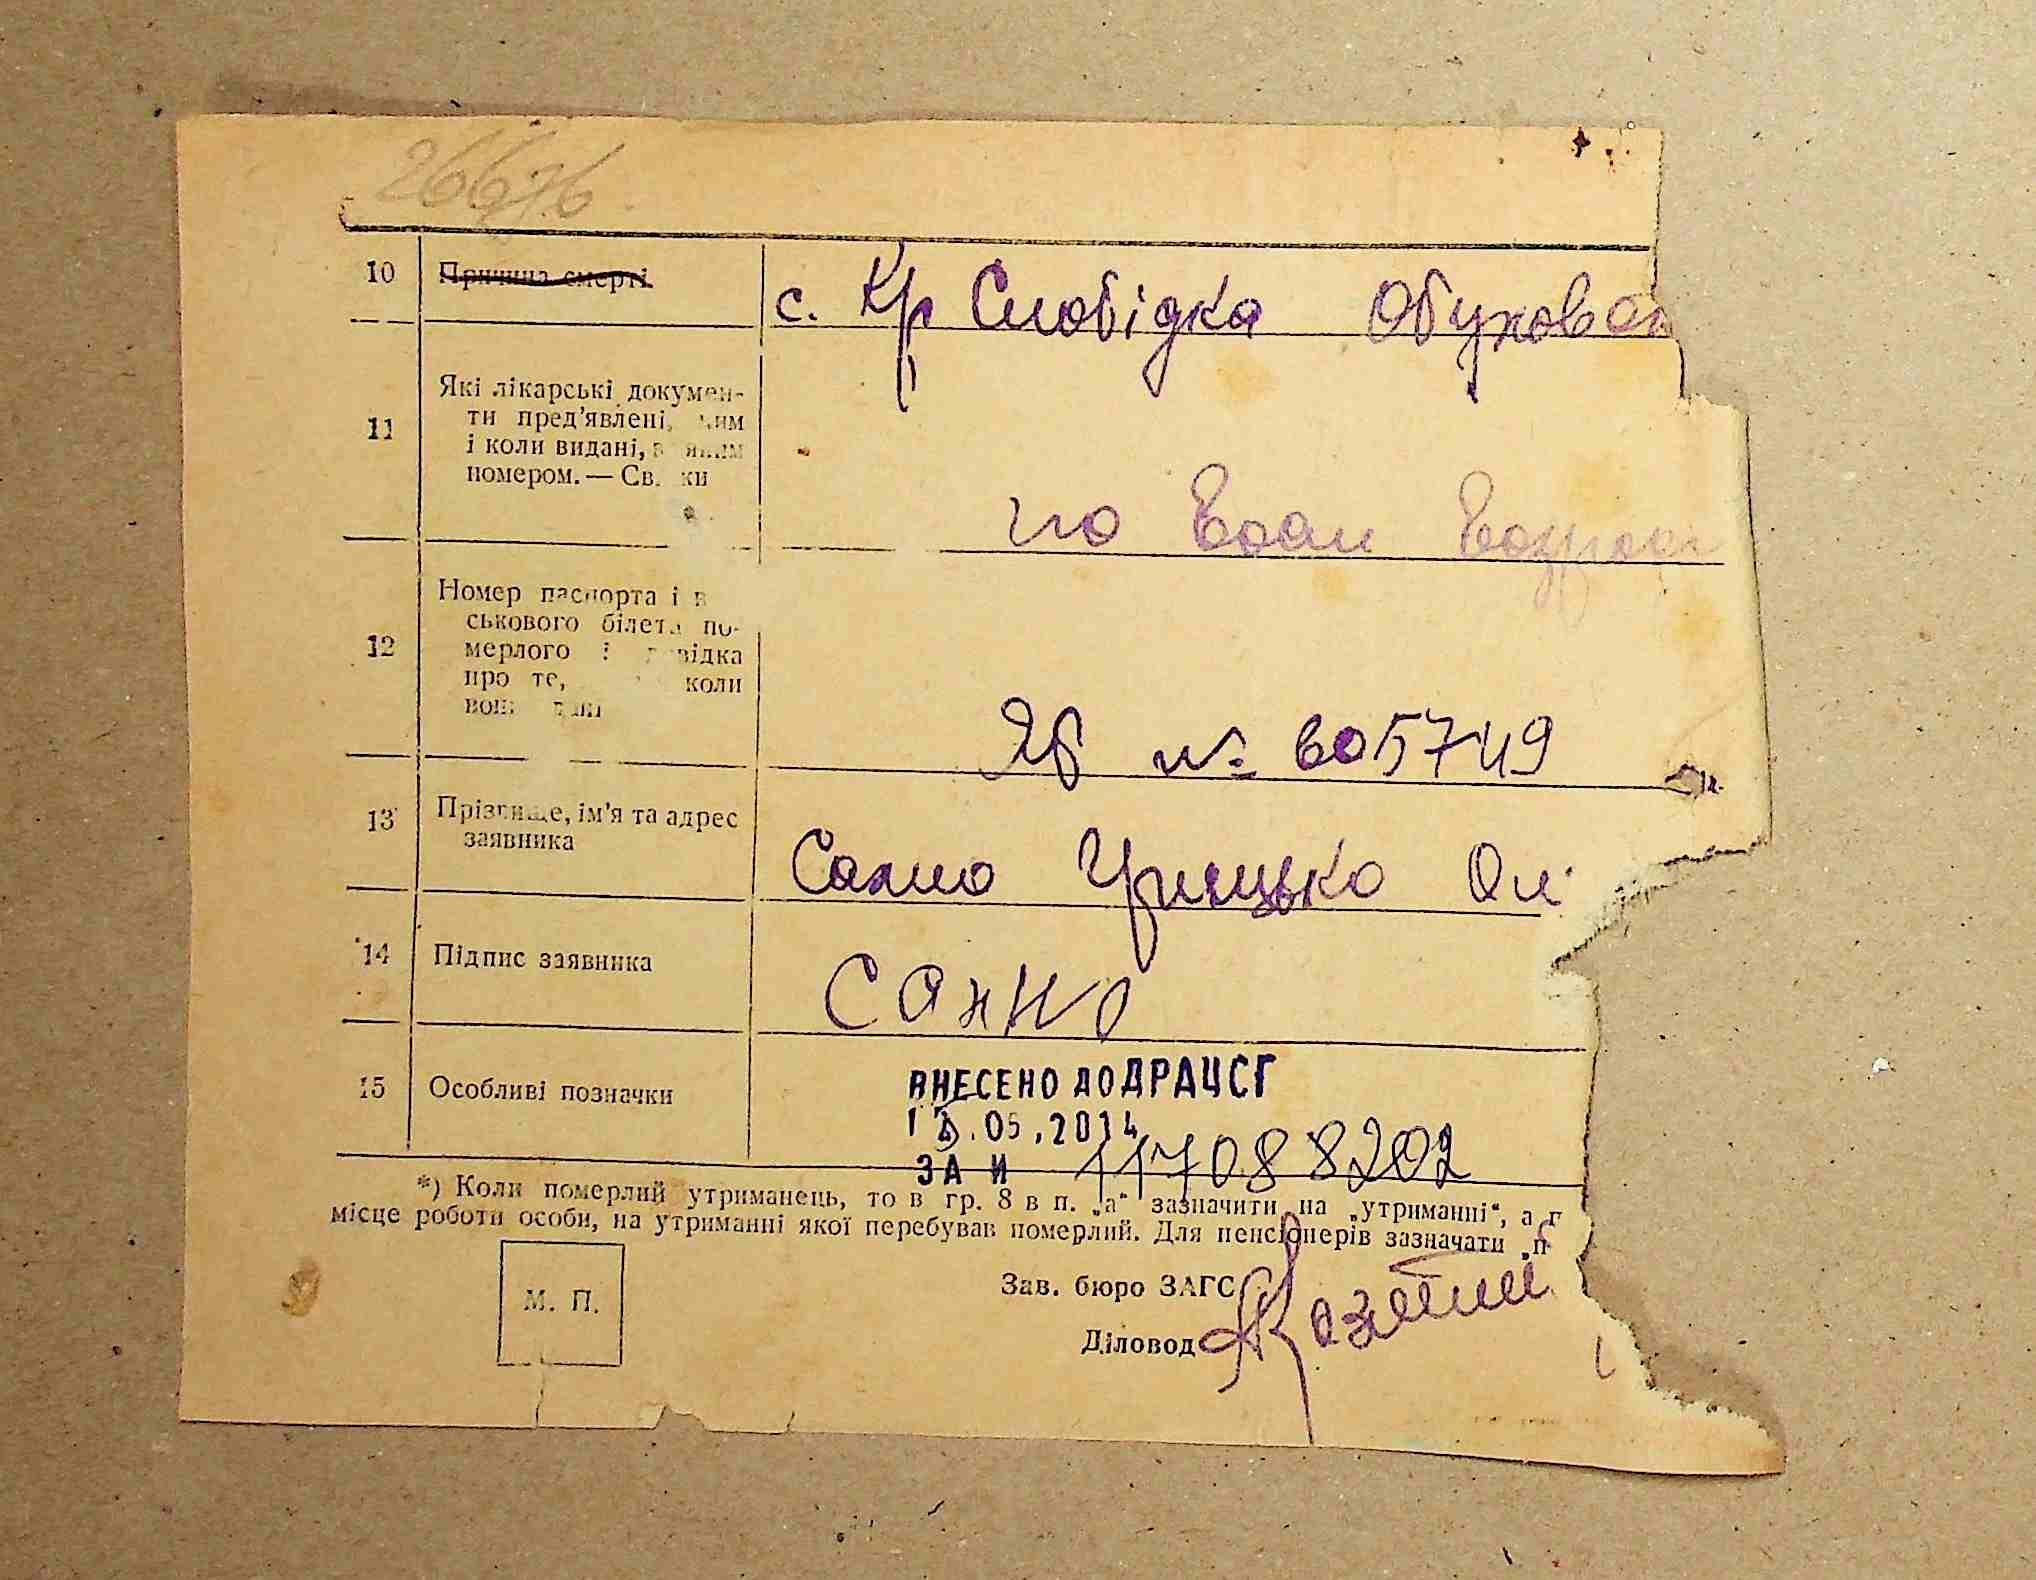 26676.
10 Причина смерті с. Кр Слобідка Обухов
11 Які лікарські докумен-
ти пред'явлені, ким
і коли видані,
номером. —
по
Номер паспорта і в
ського білета по-
12 мерлого і довідка
про те, коли
ЯБ № 605749
13 Прізвище, ім'я та адрес
заявника
Сахно Грицько Ол
14 Підпис заявника Сахно
15 Особливі позначки ВНЕСЕНО ДО ДРАЦСГ
.05.2014
ЗА И 117088202
*) Коли померлий утриманець, то в гр. 8 в п. „а“ зазначити на „утриманні“, а г
місце роботи особи, на утриманні якої перебував померлий. Для пенсіонерів зазначати „п
М. П.
Зав. бюро ЗАГС
Діловод